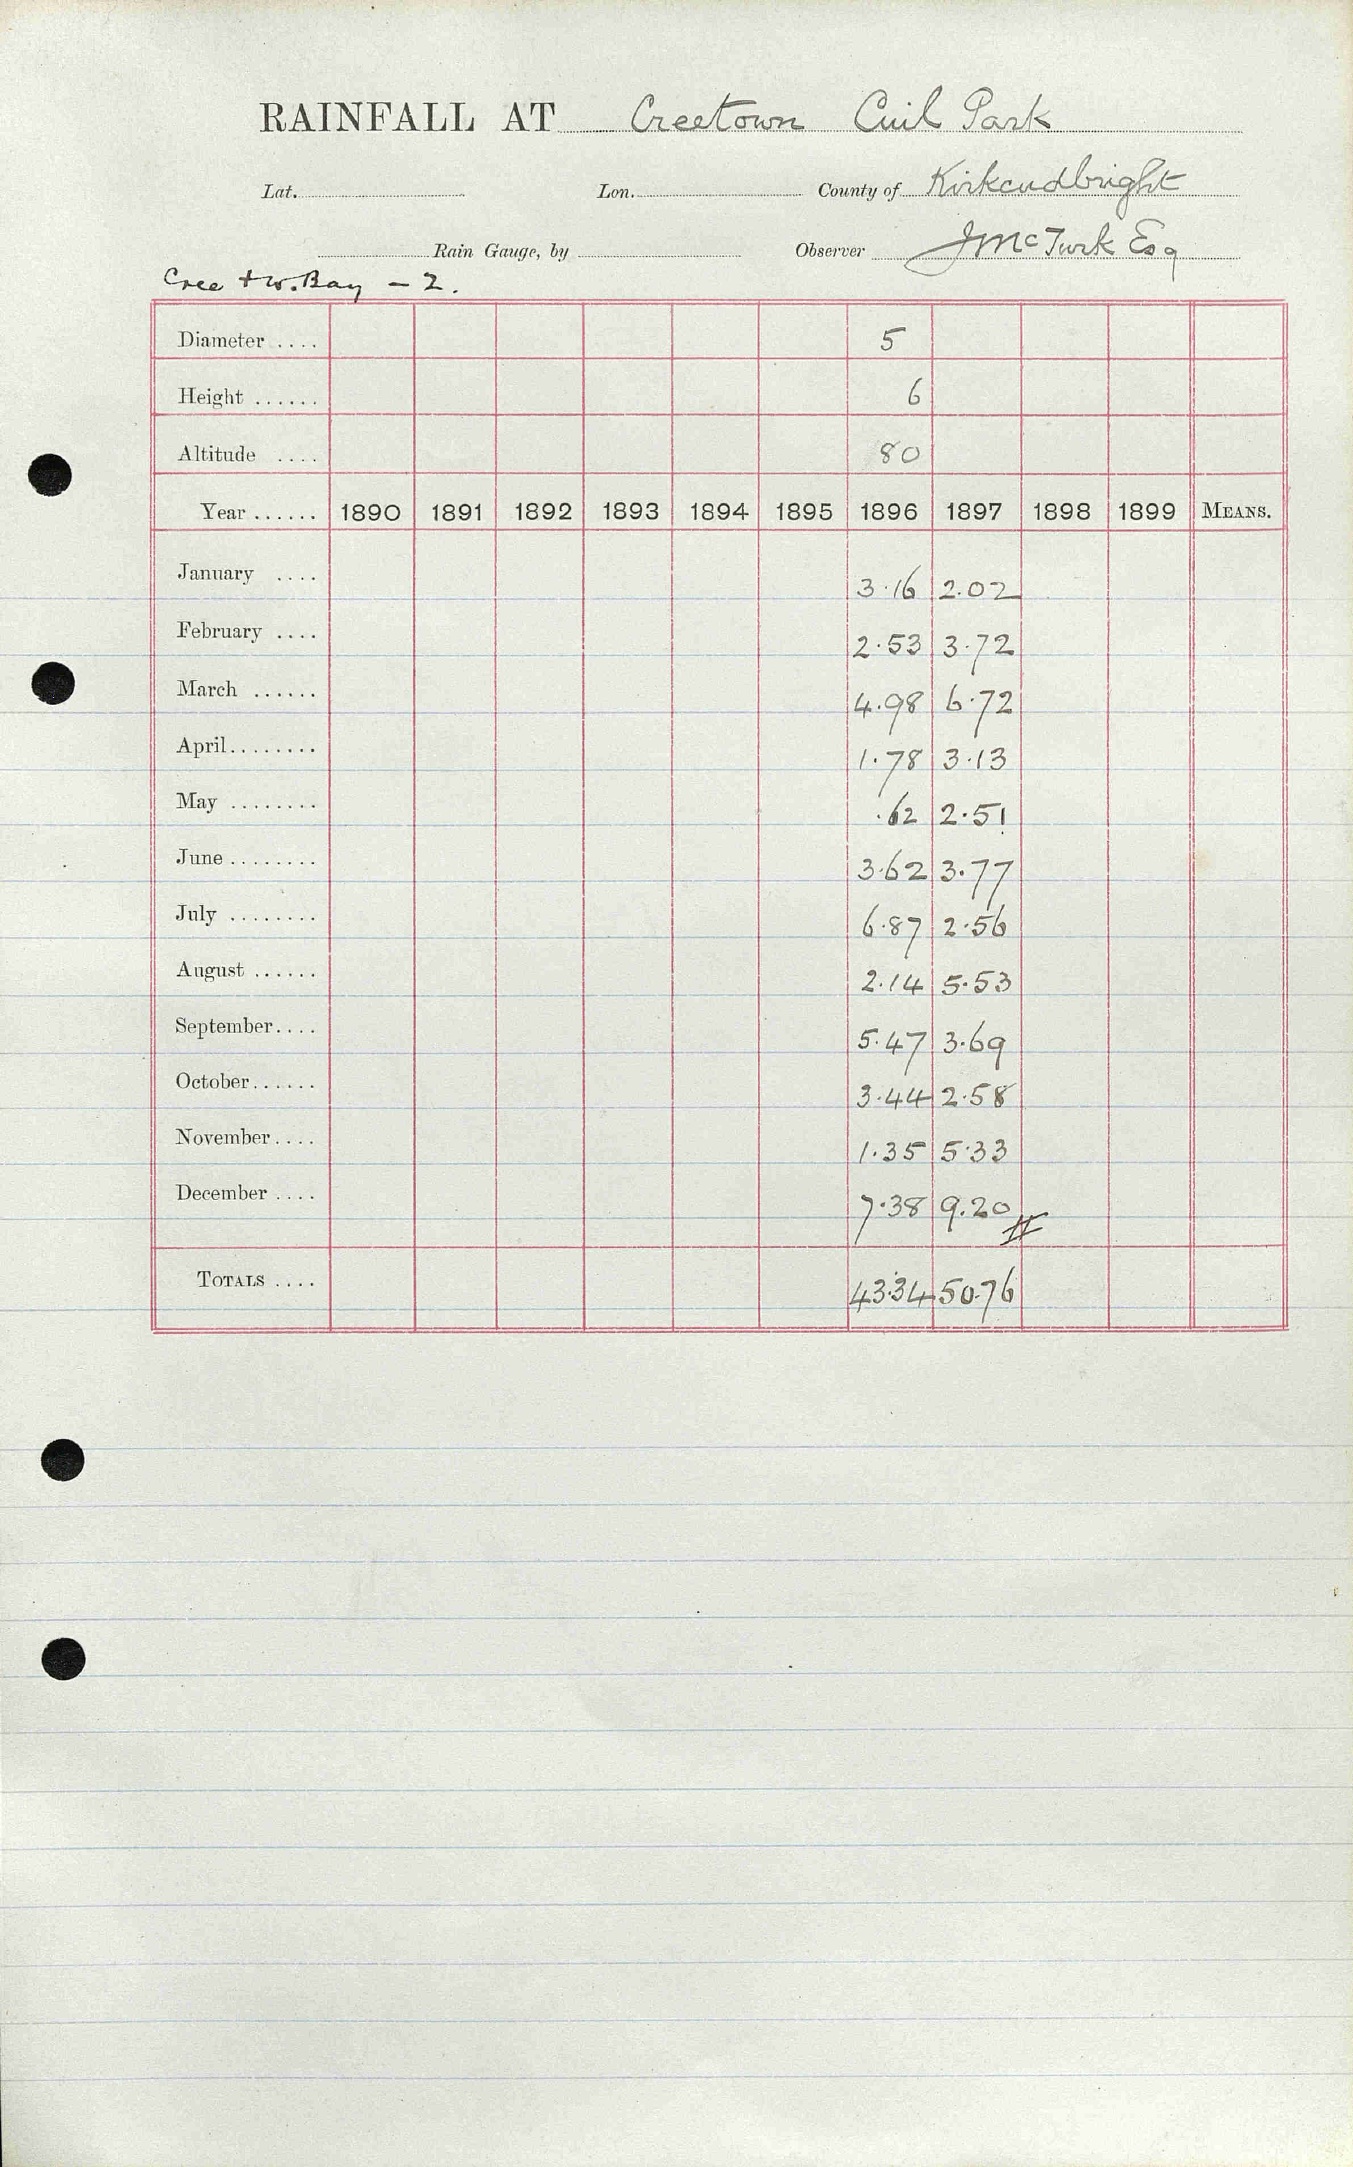 RAINFALL AT Creetown Cuil Park
Lat. Lon. County of Kirkcudbright
Rain Gauge, by Observer J McTurk Esq
Cree + W. Bay - 2.
Diameter .... 5
Height ...... 6
Altitude .... 80
Year ...... 1890 1891 1892 1893 1894 1895 1896 1897 1898 1899 MEANS.
January .... 3.16 2.02
February .... 2.53 3.72
March ...... 4.98 6.72
April........ 1.78 3.13
May ........ .62 2.51
June ........ 3.62 3.77
July ........ 6.87 2.56
August ...... 2.14 5.53
September.... 5.47 3.69
October...... 3.44 2.58
November.... 1.35 5.33
December .... 7.38 9.20
TOTALS .... 43.34 50.76